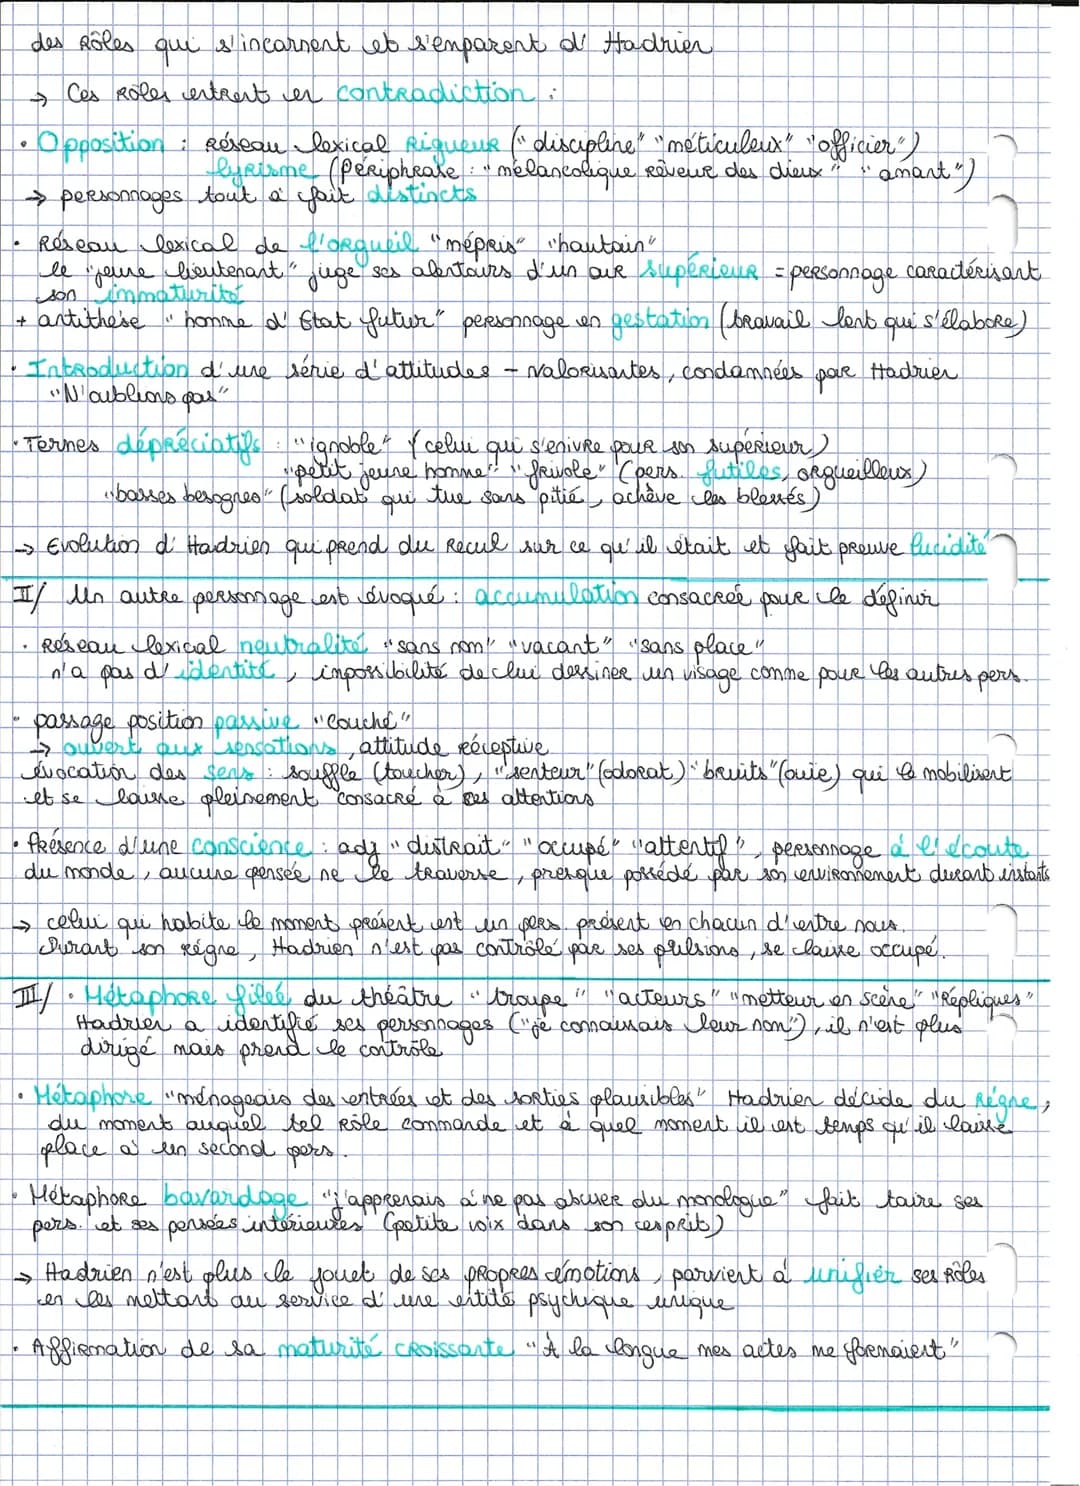 des Rôles qui s'incarnent et s'emparent d' Hadrien
→ Ces Rôles entrent en contradiction :
• Opposition : Réseau lexical Rigueur ("discipline" "méticuleux" "officier")
lyrisme (Périphrase : "mélancolique Rêveur des dieux" "amant")
→ personnages tout à fait distincts
• Réseau lexical de l'orgueil "mépris" "hautain"
le "jeune lieutenant" juge ses alentours d'un air supérieur = personnage caractérisant
son immaturité
+ antithèse "homme d' Etat futur" personnage en gestation (travail lent qui s'élabore)
• Introduction d'une série d'attitudes - valorisantes, condamnées par Hadrien
"N'oublions pas"
• Termes dépréciatifs : "ignoble" (celui qui s'enivre pour son supérieur)
"petit jeune homme" "frivole" (pers. futiles, orgueilleux)
"basses besognes" (soldat qui tue sans pitié, achève les blessés)
→ Evolution d' Hadrien qui prend du Recul sur ce qu'il était et fait preuve lucidité
II/ Un autre personnage est évoqué : accumulation consacrée pour le définir
• Réseau lexical neutralité "sans nom" "vacant" "sans place"
n'a pas d'identité, impossibilité de lui dessiner un visage comme pour les autres pers.
• passage position passive "couché"
→ ouvert aux sensations, attitude réceptive
évocation des sens : souffle (toucher), "senteur" (odorat) "bruits" (ouie) qui le mobilisent
et se laisse pleinement consacré à ces attentions
• Présence d'une conscience : adj "distrait" "occupé" "attentif", personnage à l'écoute
du monde, aucune pensée ne le traverse, presque possédé par son environnement durant instants
→ celui qui habite le moment présent est un pers. présent en chacun d'entre nous.
Durant son règne, Hadrien n'est pas contrôlé par ses pulsions, se laisse occupé.
III/ • Métaphore filée du théâtre "troupe" "acteurs" "metteur en scène" "Répliques"
Hadrien a identifié ses personnages ("je connaissais leur nom"), il n'est plus
dirigé mais prend le contrôle
• Métaphore "ménageais des entrées et des sorties plausibles" Hadrien décide du Règne,
du moment auquel tel Rôle commande et à quel moment il est temps qu'il laisse
place à un second pers.
• Métaphore bavardage "j'apprenais à ne pas abuser du monologue" fait taire ses
pers. et ses pensées intérieures (petite voix dans son esprit)
→ Hadrien n'est plus le jouet de ses propres émotions, parvient à unifier ses Rôles
en les mettant au service d' une entité psychique unique
• Affirmation de sa maturité croissante "À la longue mes actes me formaient"